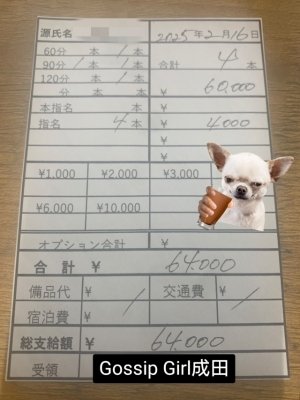 源氏名 2025年2月16日
60分 本 1本
90分 1本 1本 合計 4本
120分 本 1本
分 本 本 ¥ 60,000
本指名 本 ¥
指名 4本 ¥ 4000
¥
¥
¥1,000 ¥2,000 ¥3,000
¥6,000 ¥10,000
オプション合計 ¥
合計 ¥ 64,000
備品代 ¥ / 交通費 ¥ /
宿泊費 ¥
総支給額 ¥ 64,000
受領
Gossip Girl成田